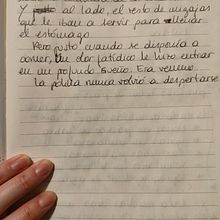 Y al lado, el resto de migajas
que le iban a servir para llenar
el estómago
Pero justo cuando se disponía a
comer, un olor fatídico le hizo entrar
en un profundo sueño. Era veneno.
La pobre nunca volvió a despertarse